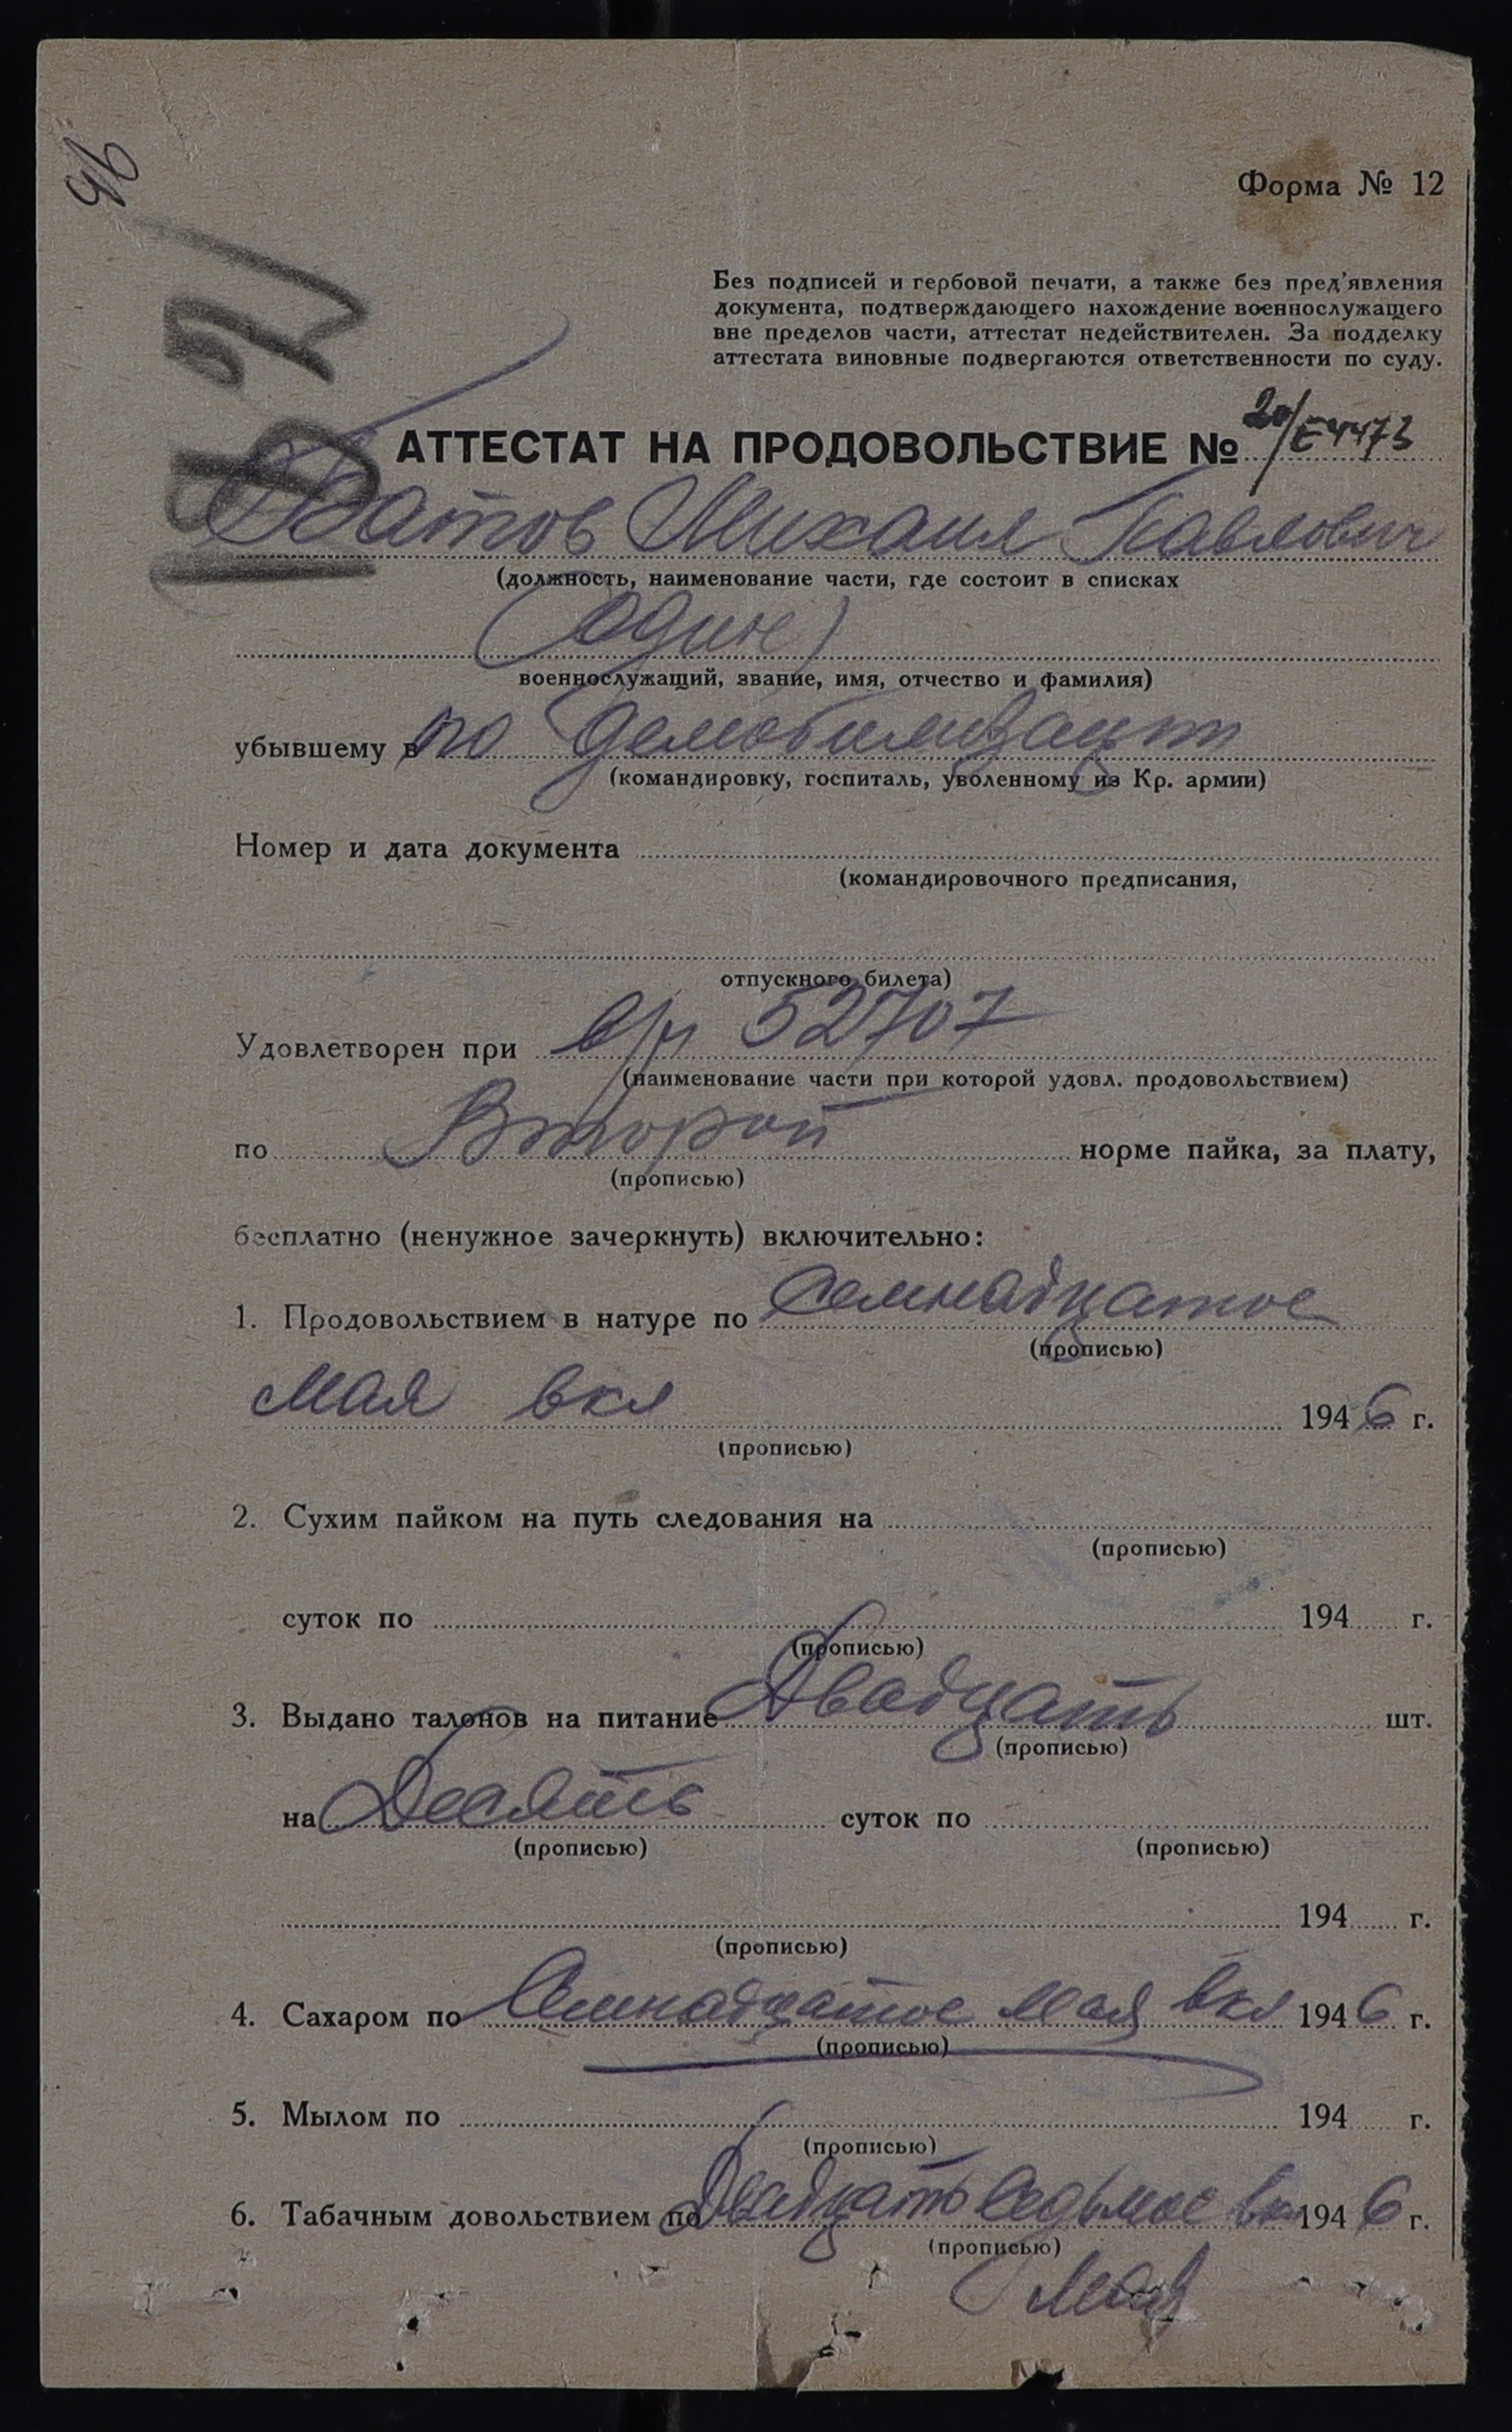 96
Форма № 12
Без подписей и гербовой печати, а также без пред'явления
документа, подтверждающего нахождение военнослужащего
вне пределов части, аттестат недействителен. За подделку
аттестата виновные подвергаются ответственности по суду.
АТТЕСТАТ НА ПРОДОВОЛЬСТВИЕ № 20/Е4473
Батов Михаил Павлович
(должность, наименование части, где состоит в списках
(один)
военнослужащий, звание, имя, отчество и фамилия)
убывшему в по демобилизации
(командировку, госпиталь, уволенному из Кр. армии)
Номер и дата документа
(командировочного предписания,
отпускного билета)
Удовлетворен при в/ч 52707
(наименование части при которой удовл. продовольствием)
по Второй норме пайка, за плату,
(прописью)
бесплатно (ненужное зачеркнуть) включительно:
1. Продовольствием в натуре по Семнадцатое
(прописью)
мая вкл 1946 г.
(прописью)
2. Сухим пайком на путь следования на
(прописью)
суток по 194 г.
(прописью)
3. Выдано талонов на питание Двадцать шт.
(прописью)
на Десять суток по
(прописью) (прописью)
194 г.
(прописью)
4. Сахаром по Семнадцатое мая вкл 1946 г.
(прописью)
5. Мылом по 194 г.
(прописью)
6. Табачным довольствием по Двадцать седьмое вкл 1946 г.
(прописью)
мая